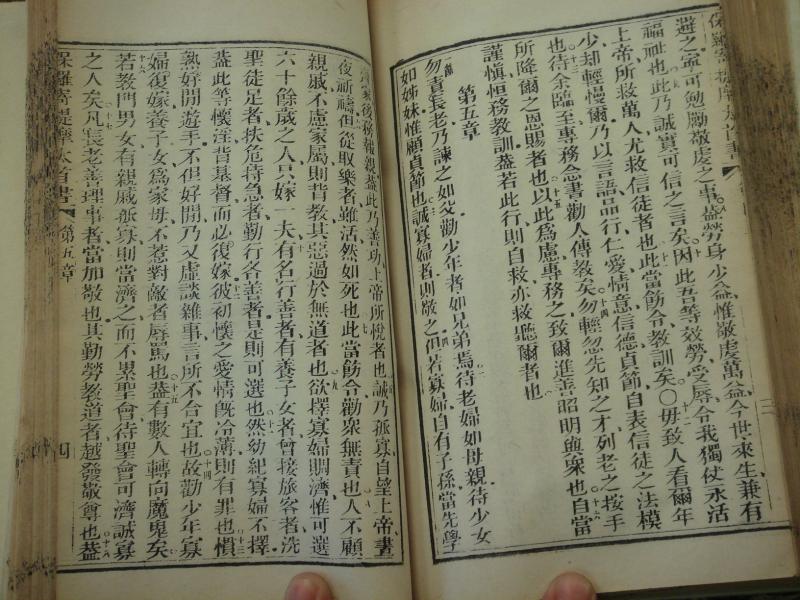 保羅寄提摩太首書
避之寧可勉勵敬虔之事蓋勞身少益惟敬虔萬益今世來生兼有
福祉也此乃誠實可信之言矣因此吾等效勞受辱令我獨仗永活
上帝所救萬人尤救信徒者也此當飭令教訓矣〇毋致人看爾年
少却輕慢爾乃以言語品行仁愛情意信德貞節自表信徒之法模
也待余臨至專務念書勸人傳教矣勿輕忽先知之才列老之按手
所降爾之恩賜者也以此爲慮專務之致爾進善昭明與眾也自當
謹愼恒務教訓蓋若此行則自救亦救聽爾者也
第五章
勿責長老乃諫之如父勸少年者如兄弟焉待老婦如母親待少女
如姊妹惟顧貞節也誠寡婦者則敬之倘若寡婦自有子孫當先學
濟家後務報親蓋此乃善功上帝所悅者也誠乃孤寡自望上帝晝
夜祈禱但從取樂者雖活然如死也此當飭令勸眾無責也人不顧
親戚不慮家屬則背教其惡過於無道者也欲擇寡婦賙濟惟可選
六十餘歲之人只嫁一夫有名行善者有養子女者曾接旅客者洗
聖徒足者扶危持急者勤行各善者是則可選也然幼紀寡婦不擇
蓋此等懷淫背基督而必復嫁彼初懷之愛情旣冷薄則有罪也慣
熟好閒遊手不但好閒乃又虛談雜事言所不合宜也故勸少年寡
婦復嫁養子女爲家毋不惹對敵者辱罵也蓋有數人轉向魔鬼矣
若教門男女有親戚孤寡則當濟之而不累聖會待聖會可濟誠寡
之人矣凡長老善理事者當加敬也其勤勞教道者越發敬尊也蓋
保羅寄提摩太首書 第五章 四